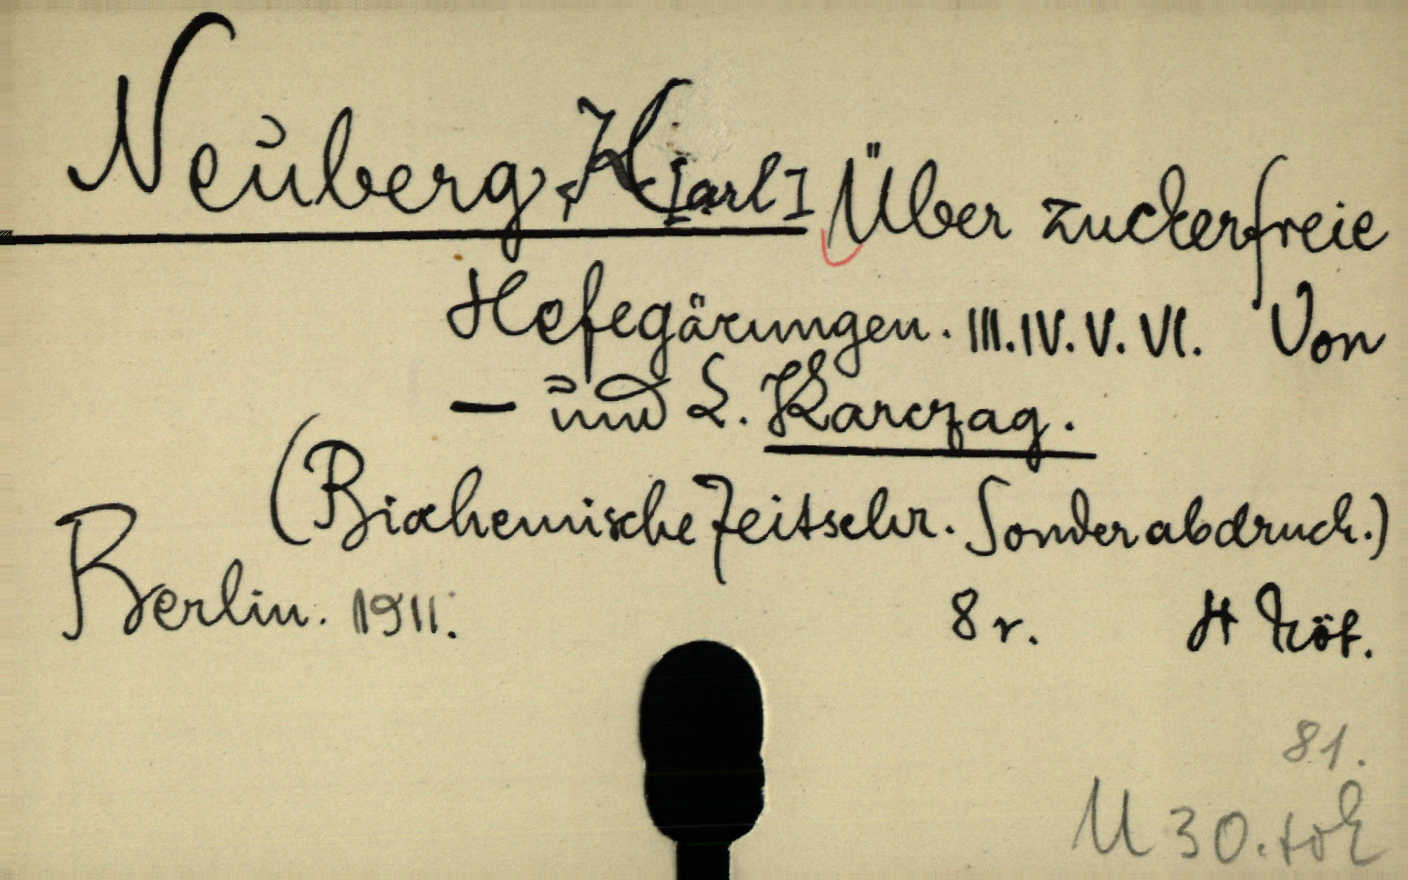 Neuberg, K[arl] Über zuckerfreie
Hefegärungen. III. IV. V. VI. Von
— und L. Karczag.
(Biochemische Zeitschr. Sonderabdruck.)
Berlin. 1911. 8r. 4 köt.
81.
M 30.